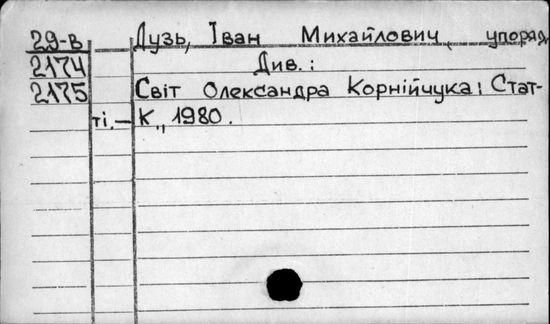 29-в Дузь, Іван Михайлович, упоряд.
2174 Див.:
2175 Світ Олександра Корнійчука: Стат-
ті.— К., 1980.